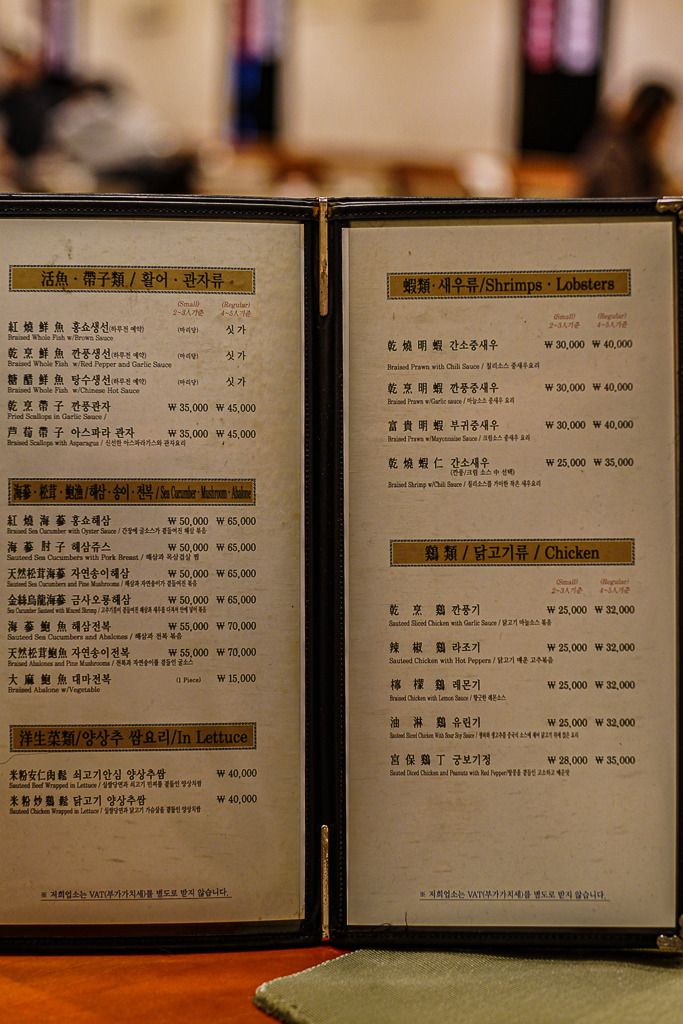 活魚 · 帶子類 / 활어 · 관자류
(Small) (Regular)
2~3人기준 4~5人기준
紅燒鮮魚 홍쇼생선(하루전 예약) (마리당) 싯가
Braised Whole Fish w/Brown Sauce
乾烹鮮魚 깐풍생선(하루전 예약) (마리당) 싯가
Braised Whole Fish w/Red Pepper and Garlic Sauce
糖醋鮮魚 탕수생선(하루전 예약) (마리당) 싯가
Braised Whole Fish w/Chinese Hot Sauce
乾烹帶子 깐풍관자 ₩ 35,000 ₩ 45,000
Fried Scallops in Garlic Sauce /
芦荀帶子 아스파라 관자 ₩ 35,000 ₩ 45,000
Braised Scallops with Asparagus / 신선한 아스파라가스와 관자요리
海蔘 · 松茸 · 鮑漁/해삼 · 송이 · 전복 / Sea Cucumber · Mushroom · Abalone
紅燒海蔘 홍쇼해삼 ₩ 50,000 ₩ 65,000
Braised Sea Cucumber with Oyster Sauce / 간장에 굴소스가 곁들여진 해삼 볶음
海蔘肘子 해삼쥬스 ₩ 50,000 ₩ 65,000
Sauteed Sea Cucumbers with Pork Breast / 해삼과 목살겹살 찜
天然松茸海蔘 자연송이해삼 ₩ 50,000 ₩ 65,000
Sauteed Sea Cucumbers and Pine Mushrooms / 해삼과 자연송이가 곁들여진 해삼볶음
金絲烏龍海蔘 금사오룡해삼 ₩ 50,000 ₩ 65,000
Sea Cucumber Sauteed with Minced Shrimp /
海蔘鮑魚 해삼전복 ₩ 55,000 ₩ 70,000
Sauteed Sea Cucumbers and Abalones / 해삼과 전복 볶음
天然松茸鮑魚 자연송이전복 ₩ 55,000 ₩ 70,000
Braised Abalones and Pine Mushrooms / 전복과 자연송이를 곁들인 굴소스
大麻鮑魚 대마전복 (1 Piece) ₩ 15,000
Braised Abalone w/Vegetable
洋生菜類/양상추 쌈요리/In Lettuce
米粉安仁肉鬆 쇠고기안심 양상추쌈 ₩ 40,000
Sauteed Beef Wrapped in Lettuce / 실쌀당면과 쇠고기 안심을 곁들인 양상치쌈
米粉炒鷄鬆 닭고기 양상추쌈 ₩ 40,000
Sauteed Chicken Wrapped in Lettuce / 실쌀당면과 닭고기 가슴살을 곁들인 양상치쌈
※ 저희업소는 VAT(부가가치세)를 별도로 받지 않습니다.
蝦類 · 새우류/Shrimps · Lobsters
(Small) (Regular)
2~3人기준 4~5人기준
乾燒明蝦 간소중새우 ₩ 30,000 ₩ 40,000
Braised Prawn with Chili Sauce / 칠리소스 중새우요리
乾烹明蝦 깐풍중새우 ₩ 30,000 ₩ 40,000
Braised Prawn w/Garlic sauce / 마늘소스 중새우
富貴明蝦 부귀중새우 ₩ 30,000 ₩ 40,000
Braised Prawn w/Mayonnaise Sauce / 크림소스 중새우 요리
乾燒蝦仁 간소새우 ₩ 25,000 ₩ 35,000
(깐풍/크림 소스 中 선택)
Braised Shrimp w/Chili Sauce / 칠리소스를 가미한 작은 새우요리
鷄類 / 닭고기류 / Chicken
(Small) (Regular)
2~3人기준 4~5人기준
乾烹鷄 깐풍기 ₩ 25,000 ₩ 32,000
Sauteed Sliced Chicken with Garlic Sauce / 닭고기 마늘소스 볶음
辣椒鷄 라조기 ₩ 25,000 ₩ 32,000
Sauteed Chicken with Hot Peppers / 닭고기 매운 고추볶음
檸檬鷄 레몬기 ₩ 25,000 ₩ 32,000
Braised Chicken with Lemon Sauce / 향긋한 레몬소스
油淋鷄 유린기 ₩ 25,000 ₩ 32,000
Sauteed Sliced Chicken With Sour Soy Sauce /
宮保鷄丁 궁보기정 ₩ 28,000 ₩ 35,000
Sauted Diced Chicken and Peanuts with Red Pepper/땅콩을 곁들인 고소하고 매운맛
※ 저희업소는 VAT(부가가치세)를 별도로 받지 않습니다.